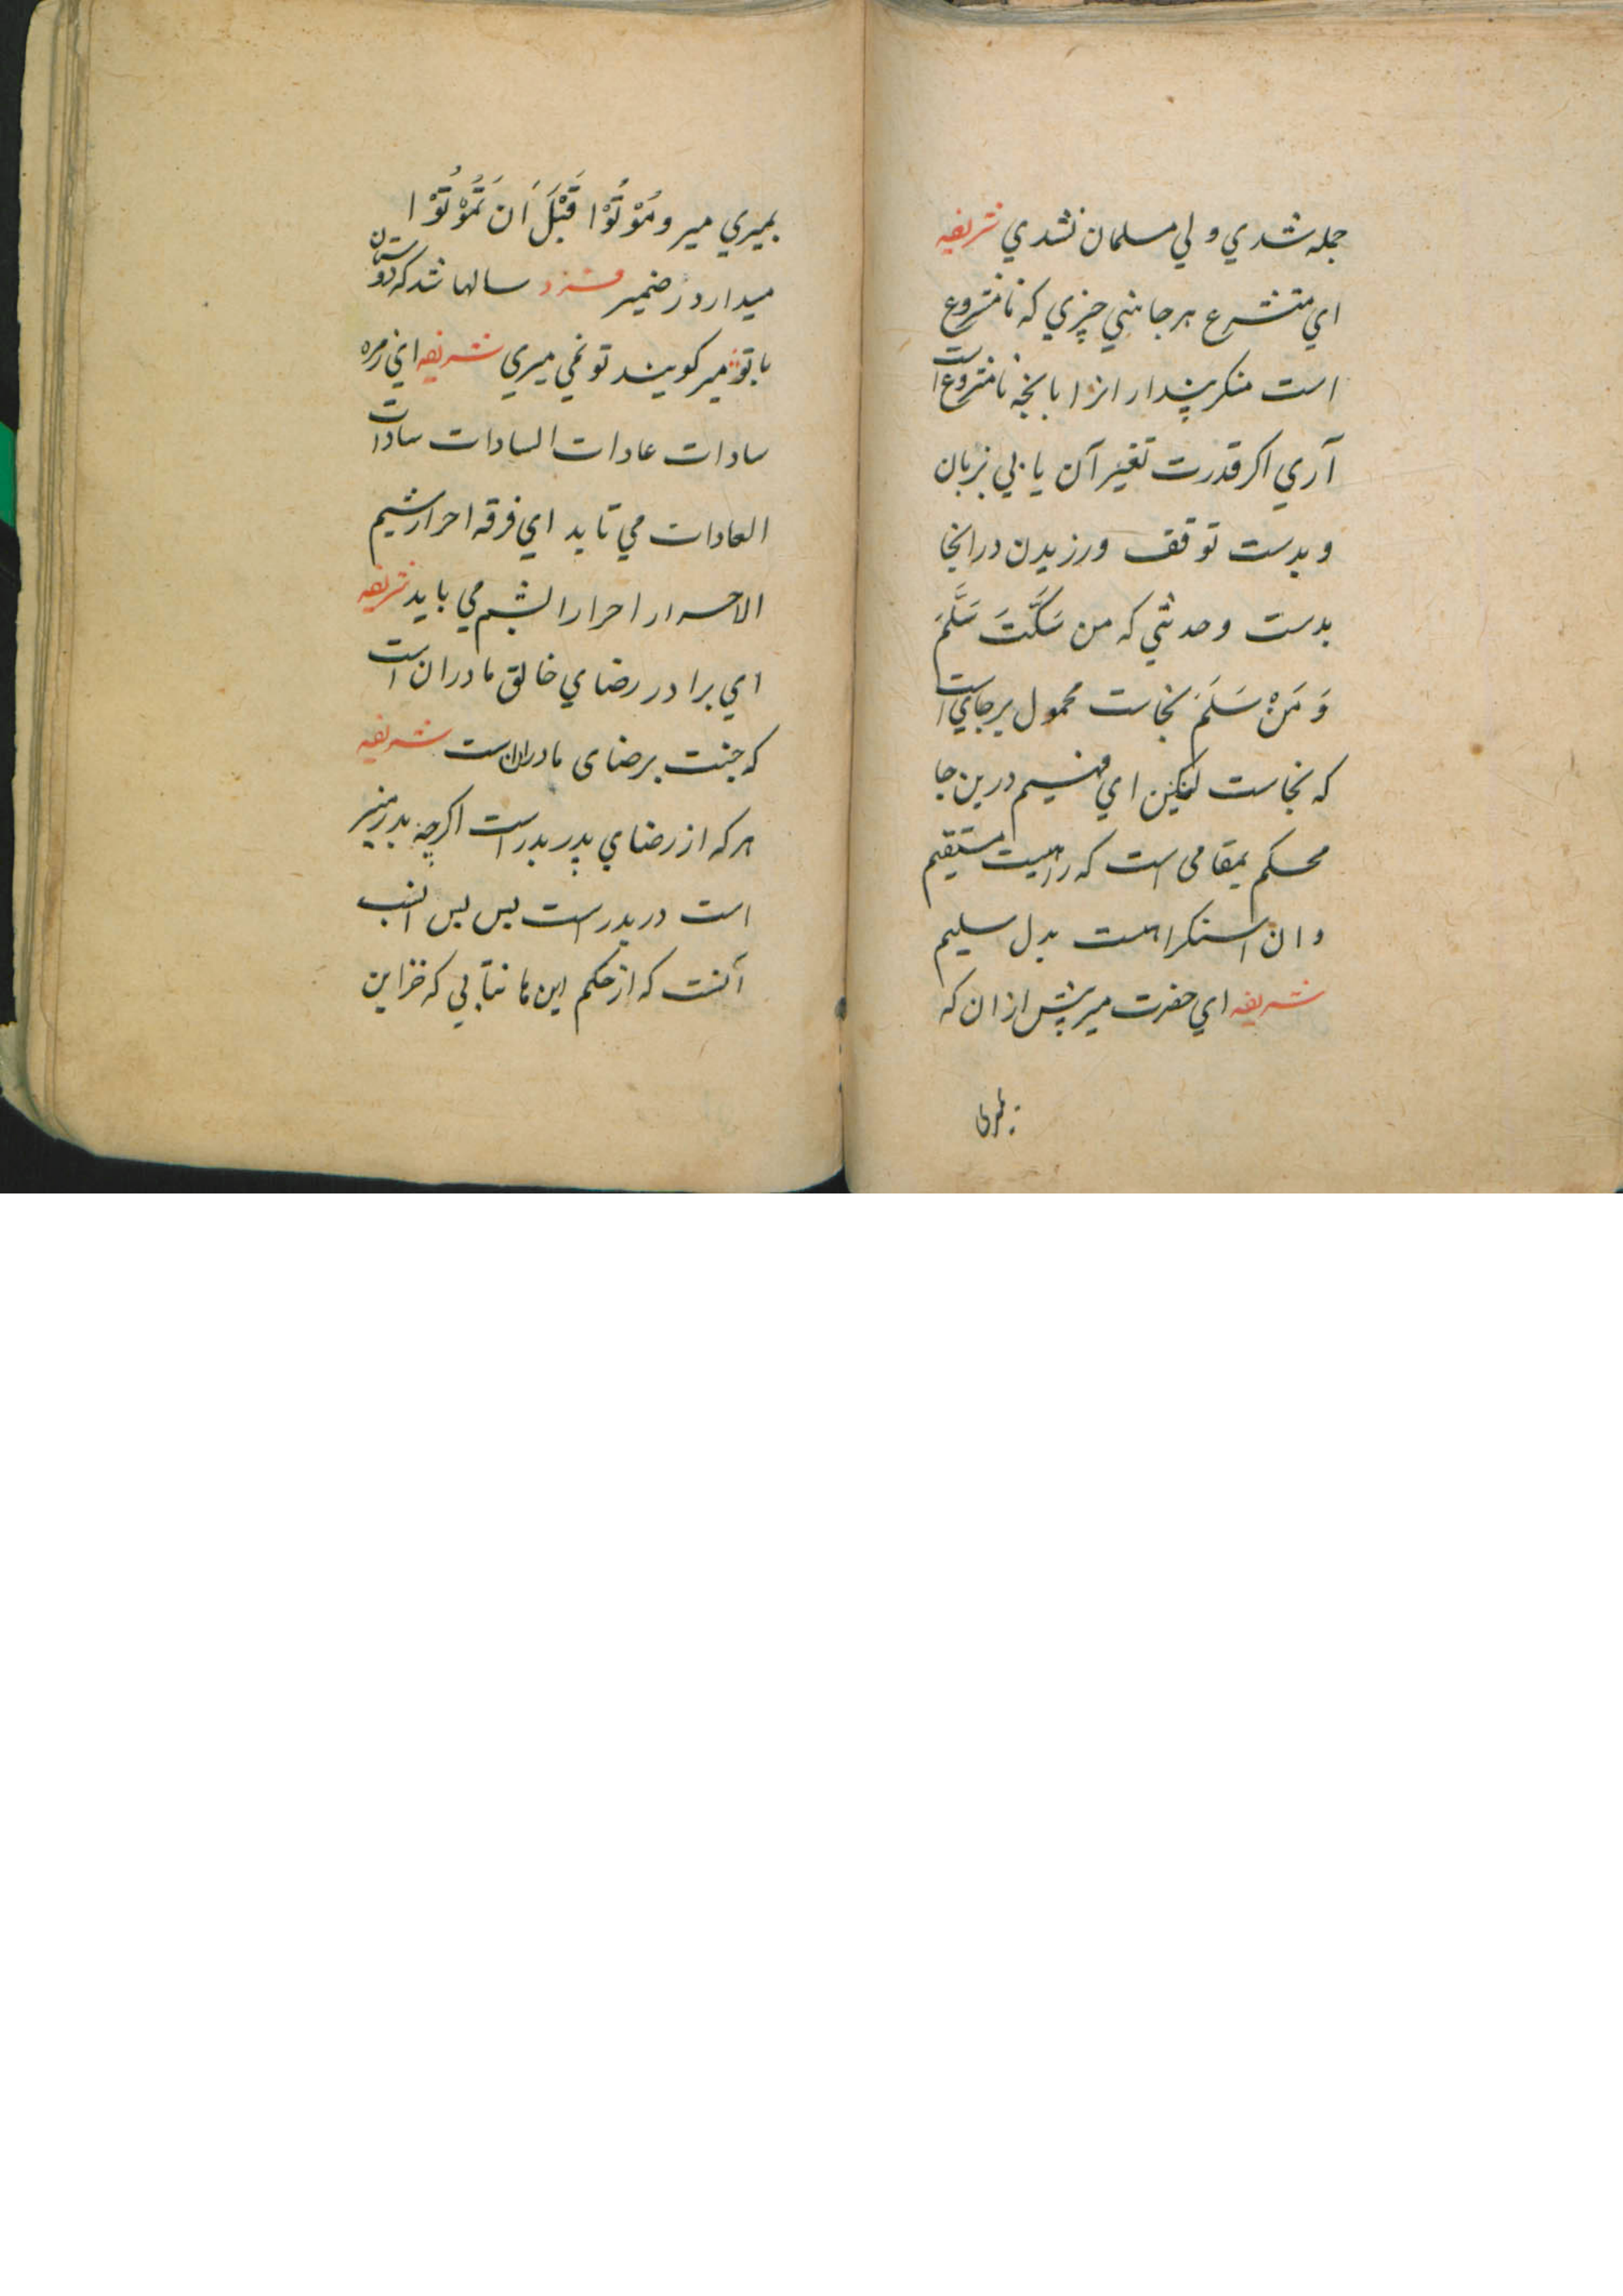 جمله شدي و لي مسلمان نشدي شريفه
اي متشرع هر جا بيني چيزي كه نا مشروع
است منكر پندار انرا بانچه نا مشروع است
آري اكر قدرت تغير آن يا بي بزبان
و بدست توقف ورزيدن درانجا
بدست وحديثي كه من سَكَتَ سَلَّمَ
وَ مَنْ سَلَمَ نجاست محمول بر جاي است
كه نجاست ليكن اي فهيم درين جا
محكم بمقامى است كه راهيست مستقيم
و ان استكراهست بدل سليم
شريفه اي حضرت مير پيش ازان كه
بميري
بميري مير و مُوْتُوْا قَبْلَ اَن تَمُوْتُوْا
ميدار در ضمير فرد سالها شد كه دوستان
با تو مير كويند تو نمي ميري شريفه اي زمره
سادات عادات السادات سادات
العادات مي تايد اي فرقه احرار شيم
الاحرار احرار الشيم مي بايد شريفه
اي برادر رضاي خالق مادران است
كه جنت بر رضاى مادرانست شريفه
هر كه از رضاي پدر بدر است اكرچه بدر منير
است در بدر است بس بس النسب
آنست كه از حكم اين ها نتابي كه خزاين